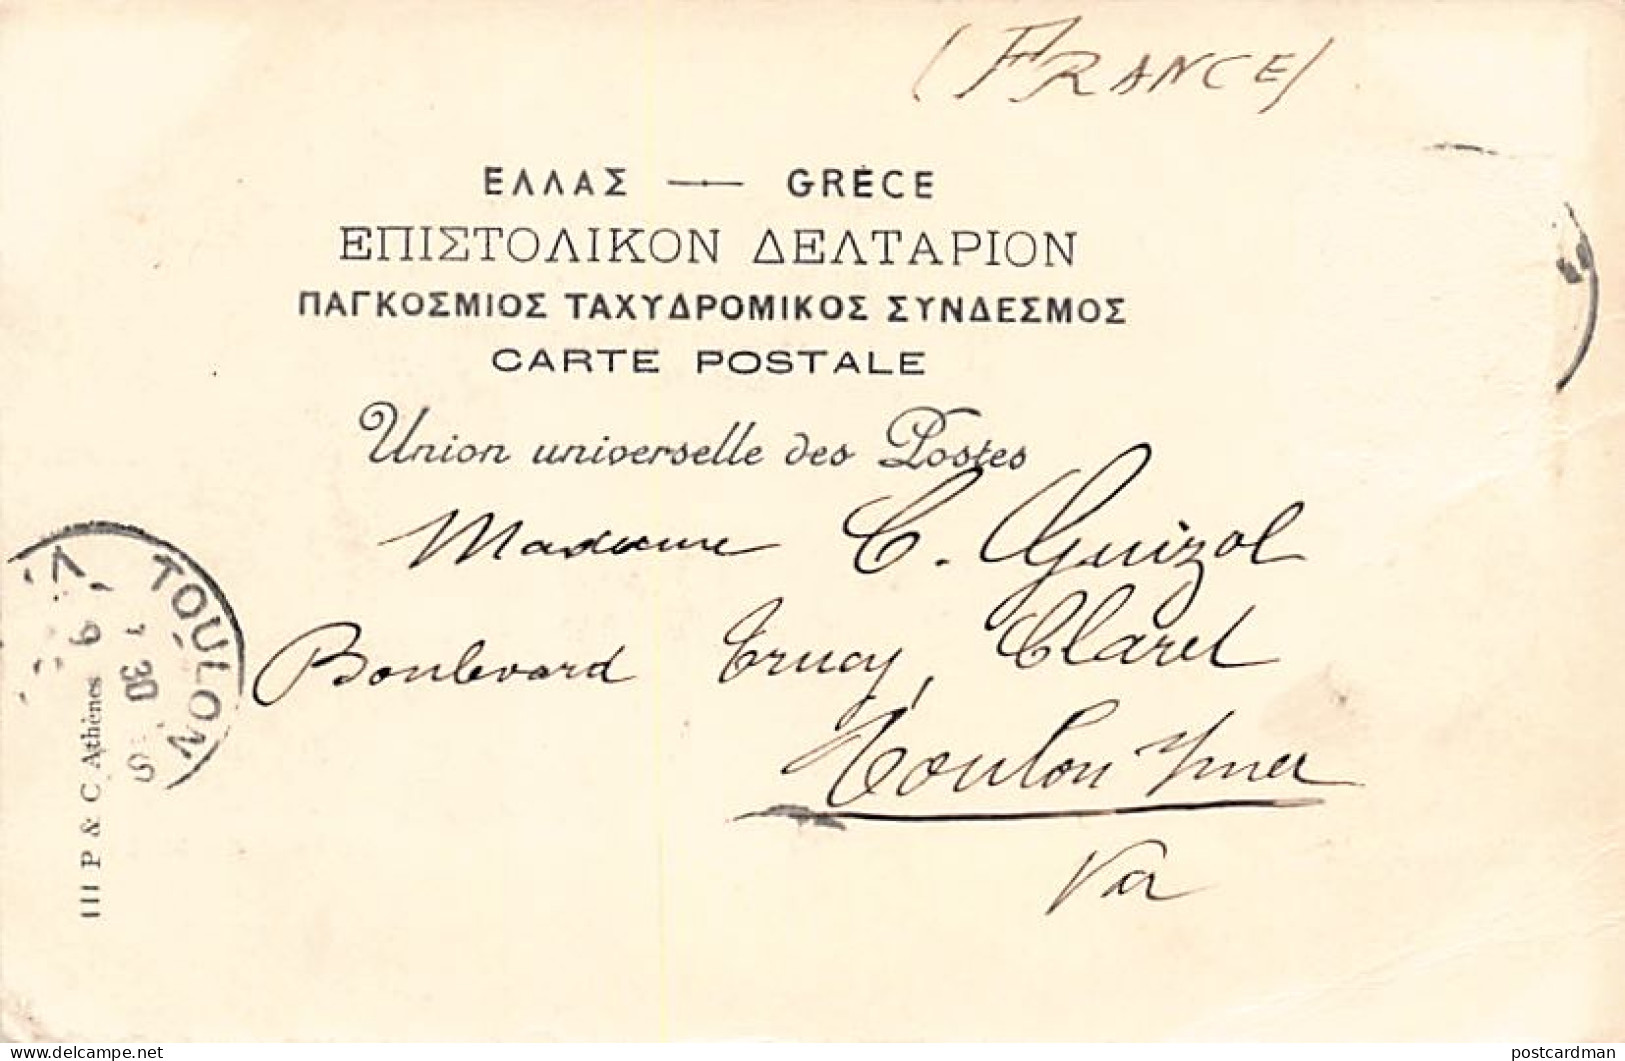 (FRANCE)
ΕΛΛΑΣ — GRÈCE
ΕΠΙΣΤΟΛΙΚΟΝ ΔΕΛΤΑΡΙΟΝ
ΠΑΓΚΟΣΜΙΟΣ ΤΑΧΥΔΡΟΜΙΚΟΣ ΣΥΝΔΕΣΜΟΣ
CARTE POSTALE
Union universelle des Postes
Madame C. Guizol
Boulevard Trucy, Claret
Toulon s/mer
Var
TOULON
30
111 P & C. Athènes
www.delcampe.net
postcardman